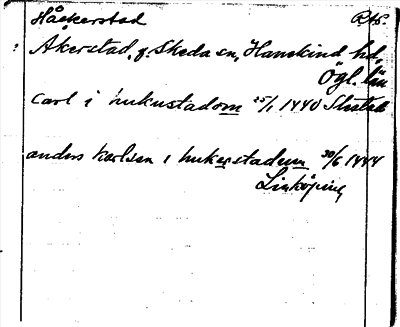 Håckerstad RAp.
? Åkerstad, g. Skeda sn, Hanekind hd,
Ögl. län
Carl i hukustadom 25/1 1440 Skeda
anders karlsen i hukerstadum 30/6 1444
Linköping